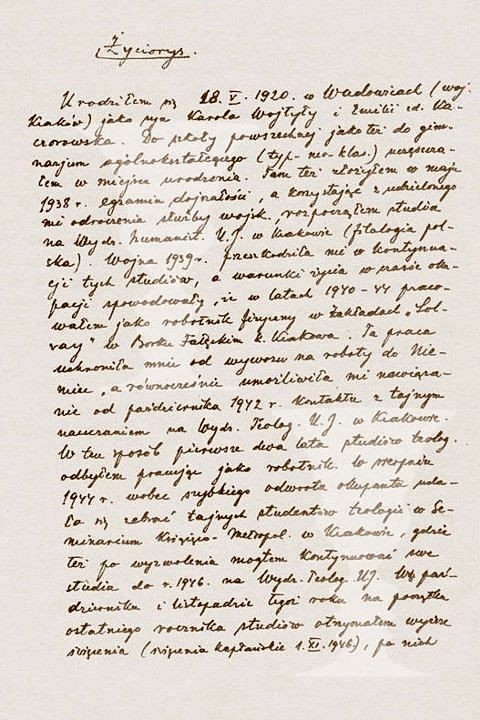 Życiorys.
Urodziłem się 18. V. 1920. w Wadowicach (woj.
Kraków) jako syn Karola Wojtyły i Emilii zd. Ka-
czorowska. Do szkoły powszechnej jako też do gim-
nazjum ogólnokształcącego (typ - neo-klas.) uczęszcza-
łem w miejscu urodzenia. Tam też złożyłem w maju
1938 r. egzamin dojrzałości, a korzystając z udzielonego
mi odroczenia służby wojsk., rozpocząłem studia
na Wydz. humanist. U. J. w Krakowie (filologia pol-
ska). Wojna 1939 r. przeszkodziła mi w kontynua-
cji tych studiów, a warunki życia w czasie oku-
pacji spowodowały, że w latach 1940-44 praco-
wałem jako robotnik fizyczny w Zakładach „Sol-
vay" w Borku Fałęckim k. Krakowa. Ta praca
uchroniła mnie od wywozu na roboty do Nie-
miec, a równocześnie umożliwiła mi nawiąza-
nie od października 1942 r. kontaktu z tajnym
nauczaniem na Wydz. Teolog. U. J. w Krakowie.
W ten sposób pierwsze dwa lata studiów teolog.
odbyłem pracując jako robotnik. W sierpniu
1944 r. wobec szybkiego odwrotu okupanta uda-
ło się zebrać tajnych studentów teologii w Se-
minarium Książęco-Metropol. w Krakowie, gdzie
też po wyzwoleniu mogłem kontynuować swe
studia do r. 1946. na Wydz. Teolog. UJ. W paź-
dzierniku i listopadzie tegoż roku na początku
ostatniego rocznika studiów otrzymałem wyższe
święcenia (święcenia kapłańskie 1. XI. 1946), po nich